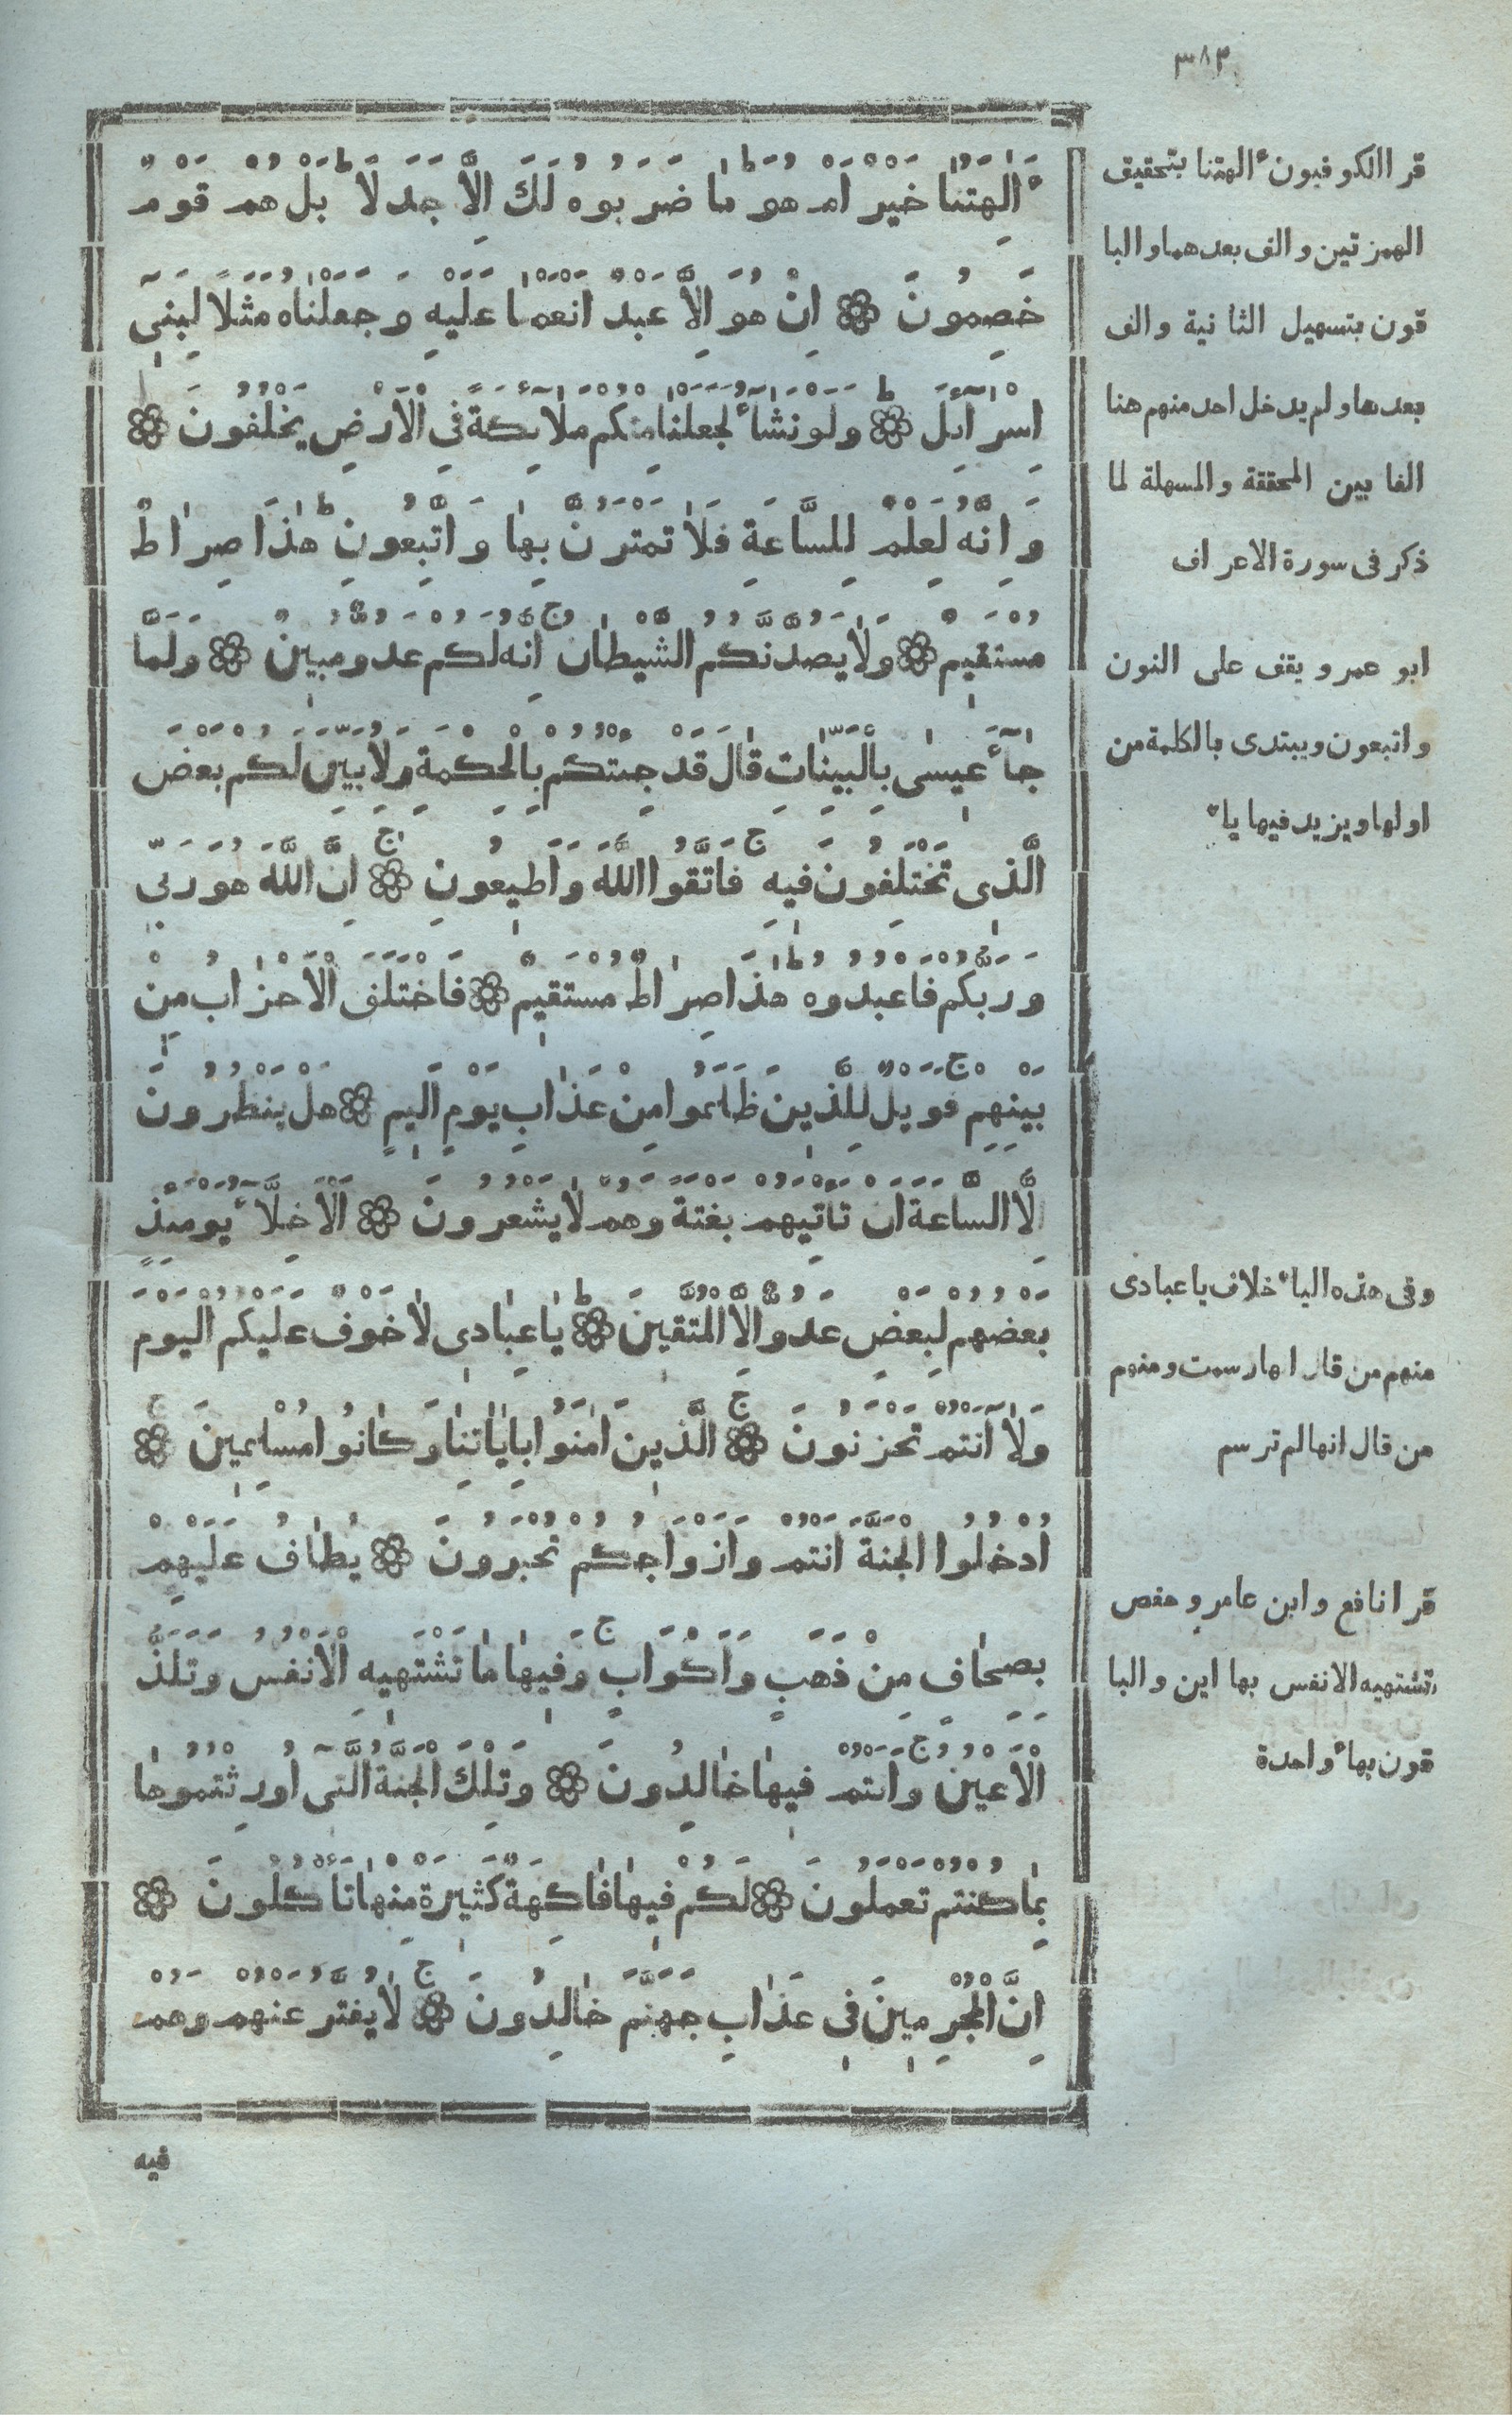 ٣٨٢
ءَاٰلِهَتُنَا خَيْرٌ اَمْ هُوَ مٰا ضَرَبُوهُ لَكَ اِلَّا جَدَلًا بَلْ هُمْ قَوْمٌ
خَصِمُونَ ۞ اِنْ هُوَ اِلَّا عَبْدٌ اَنْعَمْنٰا عَلَيْهِ وَجَعَلْنٰاهُ مَثَلًا لِبَنِىٓ
اِسْرٰآئِلَ ۞ وَلَوْ نَشٰآءُ لَجَعَلْنٰا مِنْكُمْ مَلٰآئِكَةً فِى الْاَرْضِ يَخْلُفُونَ ۞
وَاِنَّهُ لَعِلْمٌ لِلسَّاعَةِ فَلٰا تَمْتَرُنَّ بِهٰا وَاتَّبِعُونِ هٰذَا صِرٰاطٌ
مُسْتَقِيمٌ ۞ وَلٰا يَصُدَّنَّكُمُ الشَّيْطٰانُ اِنَّهُ لَكُمْ عَدُوٌّ مُبِينٌ ۞ وَلَمَّا
جٰآءَ عِيسٰى بِالْبَيِّنٰاتِ قٰالَ قَدْ جِئْتُكُمْ بِالْحِكْمَةِ وَلِاُبَيِّنَ لَكُمْ بَعْضَ
الَّذِى تَخْتَلِفُونَ فِيهِ فَاتَّقُوا اللَّهَ وَاَطِيعُونِ ۞ اِنَّ اللَّهَ هُوَ رَبِّى
وَرَبُّكُمْ فَاعْبُدُوهُ هٰذَا صِرٰاطٌ مُسْتَقِيمٌ ۞ فَاخْتَلَفَ الْاَحْزٰابُ مِنْ
بَيْنِهِمْ فَوَيْلٌ لِلَّذِينَ ظَلَمُوا مِنْ عَذٰابِ يَوْمٍ اَلِيمٍ ۞ هَلْ يَنْظُرُونَ
اِلَّا السَّاعَةَ اَنْ تَأْتِيَهُمْ بَغْتَةً وَهُمْ لٰا يَشْعُرُونَ ۞ اَلْاَخِلَّآءُ يَوْمَئِذٍ
بَعْضُهُمْ لِبَعْضٍ عَدُوٌّ اِلَّا الْمُتَّقِينَ ۞ يٰا عِبٰادِى لٰا خَوْفٌ عَلَيْكُمُ الْيَوْمَ
وَلٰآ اَنْتُمْ تَحْزَنُونَ ۞ اَلَّذِينَ اٰمَنُوا بِاٰيٰاتِنٰا وَكٰانُوا مُسْلِمِينَ ۞
اُدْخُلُوا الْجَنَّةَ اَنْتُمْ وَاَزْوٰاجُكُمْ تُحْبَرُونَ ۞ يُطٰافُ عَلَيْهِمْ
بِصِحٰافٍ مِنْ ذَهَبٍ وَاَكْوٰابٍ وَفِيهٰا مٰا تَشْتَهِيهِ الْاَنْفُسُ وَتَلَذُّ
الْاَعْيُنُ وَاَنْتُمْ فِيهٰا خٰالِدُونَ ۞ وَتِلْكَ الْجَنَّةُ الَّتِى اُورِثْتُمُوهٰا
بِمٰا كُنْتُمْ تَعْمَلُونَ ۞ لَكُمْ فِيهٰا فٰاكِهَةٌ كَثِيرَةٌ مِنْهٰا تَأْكُلُونَ ۞
اِنَّ الْمُجْرِمِينَ فِى عَذٰابِ جَهَنَّمَ خٰالِدُونَ ۞ لٰا يُفَتَّرُ عَنْهُمْ وَهُمْ
فيه
قرا الكوفيون ءالهتنا بتحقيق
الهمزتين والف بعدهما والبا
قون بتسهيل الثانية والف
بعدها ولم يدخل احد منهم هنا
الفا بين المحققة والمسهلة لما
ذكر فى سورة الاعراف
ابو عمرو يقف على النون
واتبعون ويبتدى بالكلمة من
اولها ويزيد فيها ياء
وفى هذه الياء خلاف يا عبادى
منهم من قال انها رسمت ومنهم
من قال انها لم ترسم
قرا نافع وابن عامر وحفص
تشتهيه الانفس بهاءين والبا
قون بهاء واحدة